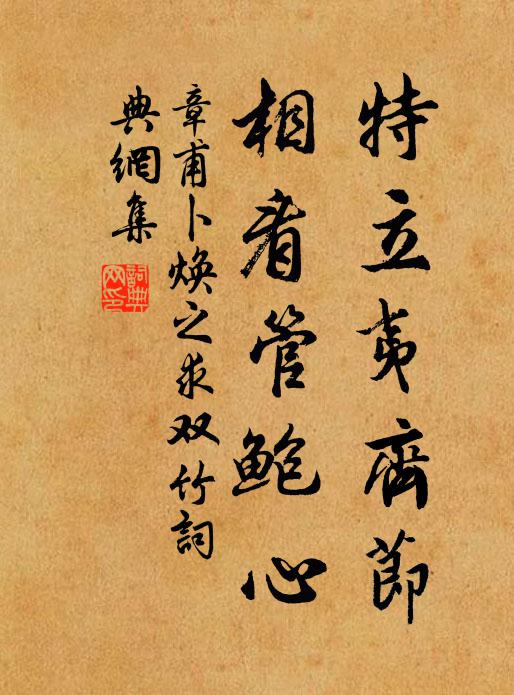 特立夷齊節
相看管鮑心
章甫卜煥之求双竹詞
典網集
詞典網印